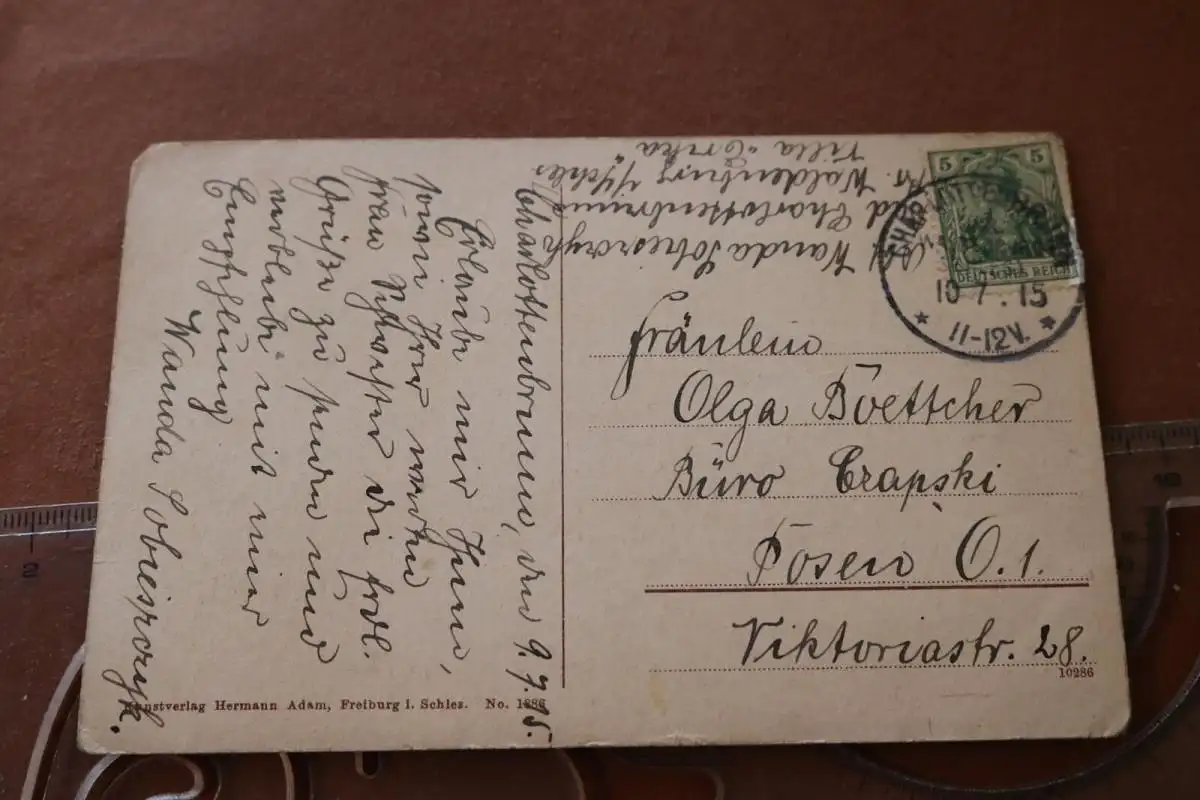 Charlottenbrunn, den 9.7.15.
Erlaube mir Ihnen,
sowie Ihrer werten
Frau Schwester die frdl.
Grüße zu senden und
verbleibe mit einer
Empfehlung
Wanda Sobieszczyk.
Wanda Sobieszczyk
Bad Charlottenbrunn
Kr. Waldenburg i/Schles
Villa "Erika"
5 5
DEUTSCHES REICH
10 7.15
11-12V.
Fräulein
Olga Boettcher
Büro Czapski
Posen O.1.
Viktoriastr. 28.
10286
Kunstverlag Hermann Adam, Freiburg i. Schles. No.
2
10